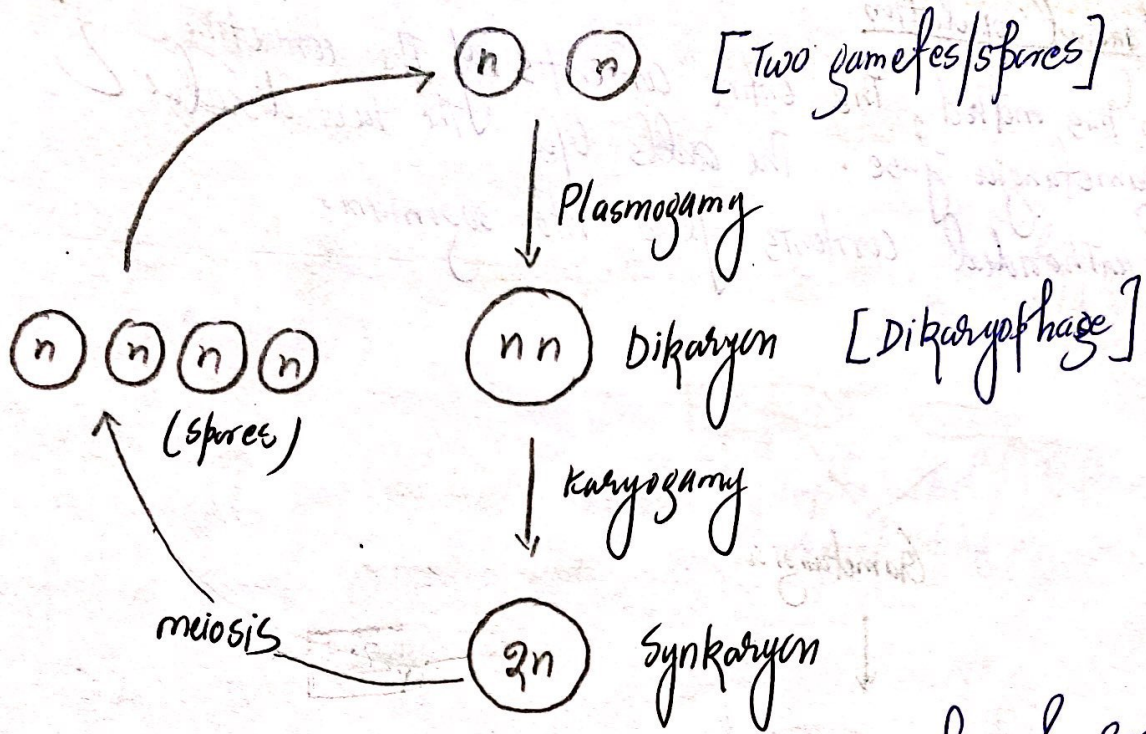 n n [Two gametes/spores]
Plasmogamy
n n n n
(spores)
n n Dikaryon [Dikaryophage]
Karyogamy
meiosis
2n Synkaryon